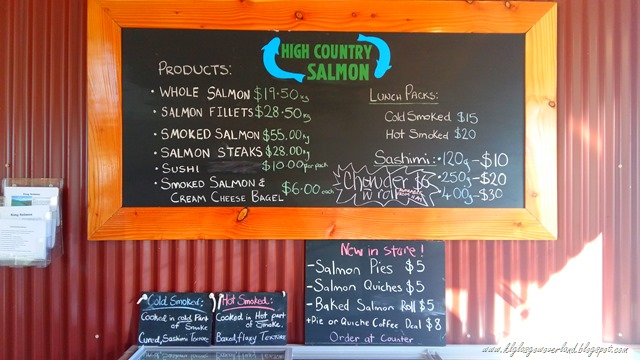 HIGH COUNTRY
SALMON
PRODUCTS:
• WHOLE SALMON $19.50 kg
• SALMON FILLETS $28.50 kg
• SMOKED SALMON $55.00 kg
• SALMON STEAKS $28.00 kg
• SUSHI $10.00 per pack
• SMOKED SALMON &
CREAM CHEESE BAGEL $6.00 each
LUNCH PACKS:
Cold Smoked $15
Hot Smoked $20
Sashimi: • 120g - $10
• 250g - $20
400g - $30
Chowder $6
New in store!
- Salmon Pies $5
- Salmon Quiches $5
- Baked Salmon Roll $5
+ Pie or Quiche Coffee Deal $8
Order at Counter
Cold Smoked:
Cooked in cold Part
of Smoke
Cured, Sashimi Texture
Hot Smoked:
Cooked in Hot part
of Smoke.
Baked, Flaxy Texture
www.klglasgowoverland.blogspot.com